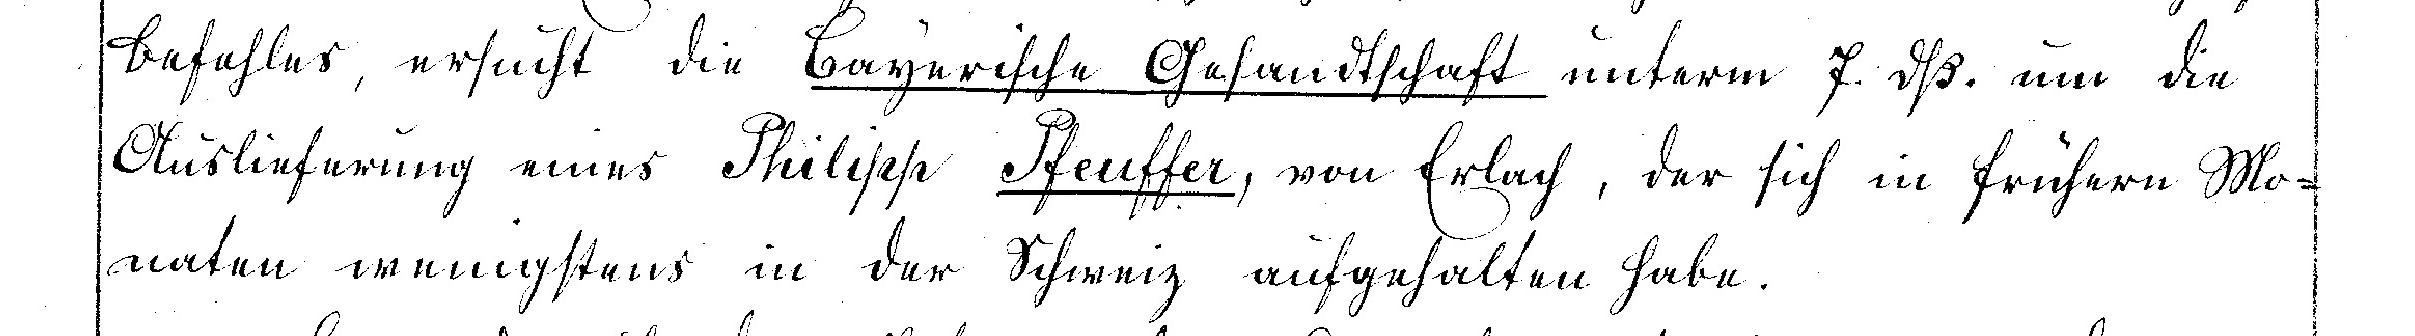 befehles, ersucht die Bayerische Gesandtschaft unterm 7. dß. um die
Auslieferung eines Philipp Pfeuffer, von Erlach, der sich in frühern Mo=
naten wenigstens in der Schweiz aufgehalten habe.